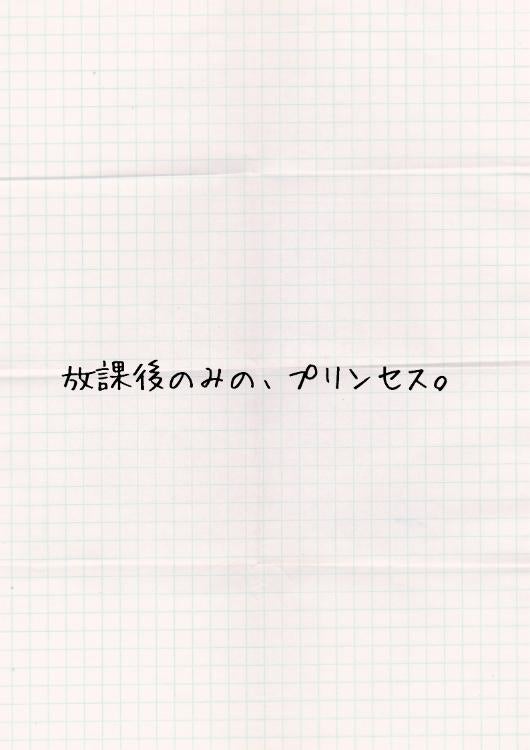 放課後のみの、プリンセス。